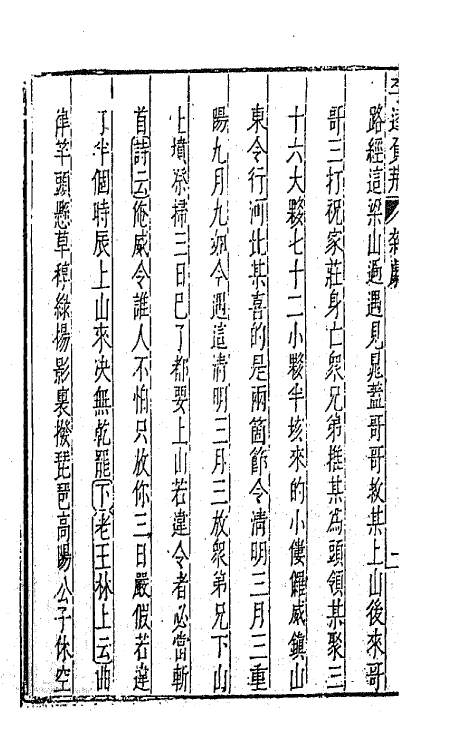 李逵負荊 雜劇 一
路經這梁山過遇見晁蓋哥哥救某上山後來哥
哥三打祝家莊身亡衆兄弟推某爲頭領某聚三
十六大夥七十二小夥半垓來的小僂儸威鎭山
東令行河北某喜的是兩箇節令清明三月三重
陽九月九如今遇這清明三月三放衆弟兄下山
上墳祭掃三日已了都要上山若違令者必當斬
首詩云俺威令誰人不怕只放你三日嚴假若違
了半個時辰上山來决無乾罷下老王林上云曲
律竿頭懸草稕綠楊影裏撥琵琶高陽公子休空